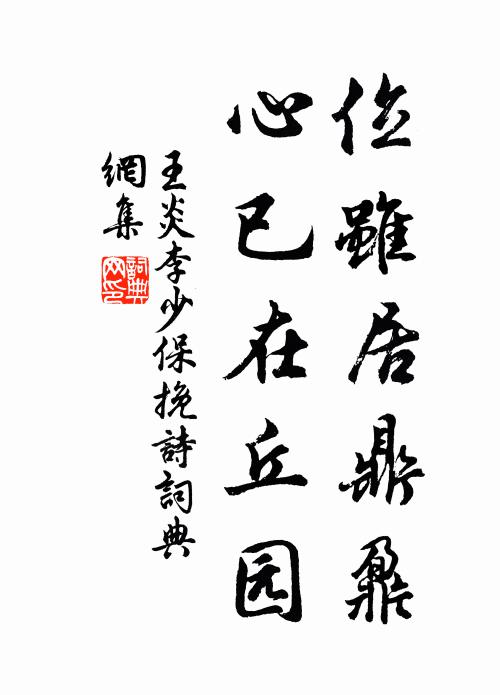 位雖居鼎鼐
心已在丘园
王炎李少保挽詩詞典
網集
詞典
网印